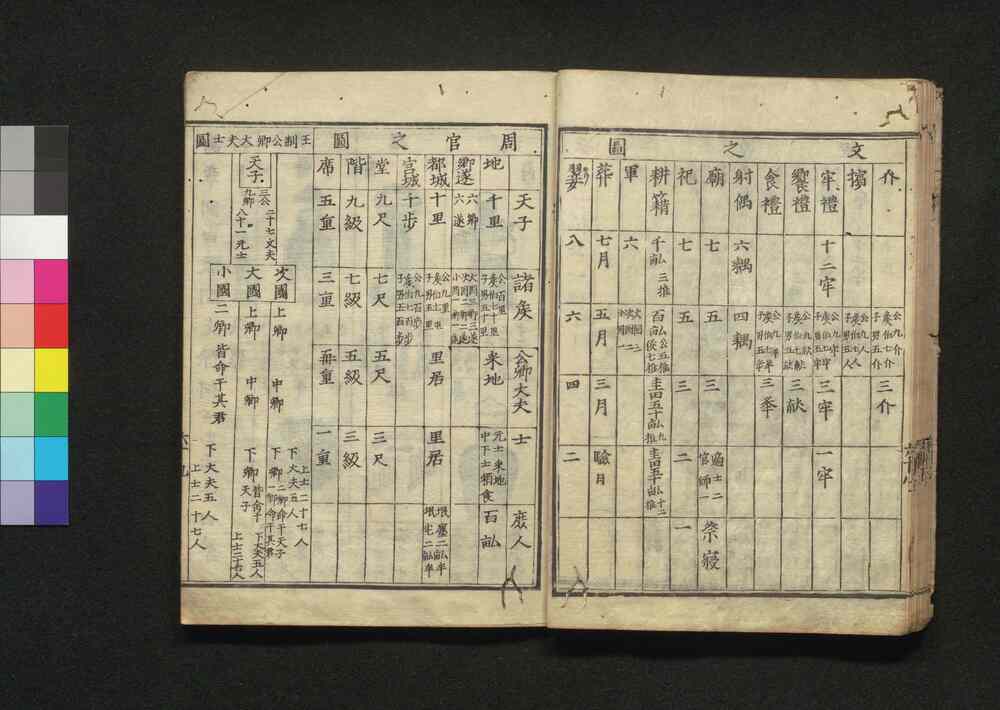 文之圖
介 公九介 侯伯七介 子男五介 三介
擯 公九人 侯伯七人 子男五人
牢禮 十二牢 公九牢 侯伯七牢 子男五牢 三牢 一牢
饗禮 公九献 侯伯七献 子男五献 三献
食禮 公九舉 侯伯七舉 子男五舉 三舉
射偶 六耦 四耦
廟 七 五 三 適士二 官師一 祭寢
祀 七 五 三 二 一
耕籍 千畝 三推 百畝 公五推 侯七推 圭田五十畝 九推 圭田五十畝 十二推
軍 六 大國三 次國二 小國一
葬 七月 五月 三月 踰月
翣 八 六 四 二
周官之圖
天子 諸侯 公卿大夫 士 庶人
地 千里 公百里 侯伯七十里 子男五十里 采地 元士采地 中下士稍食 百畝
鄉遂 六鄉 六遂 大國三鄉三遂 次國二鄉二遂 小國一鄉一遂
都城 十里 公九里 侯伯七里 子男五里 里居 里居 㕓二畝半 宅二畝半
宫城 十步 公九百步 侯伯七百步 子男五百步
堂 九尺 七尺 五尺 三尺
階 九級 七級 五級 三級
席 五重 三重 再重 一重
王制公卿大夫士圖
天子 三公 九卿 二十七大夫 八十一元士
次國 上卿 中卿 下卿 二卿命于天子 一卿命于其君 下大夫五人 上士二十七人
大國 上卿 中卿 下卿 皆命于天子 下大夫五人 上士二十七人
小國 二卿 皆命于其君 下大夫五人 上士二十七人